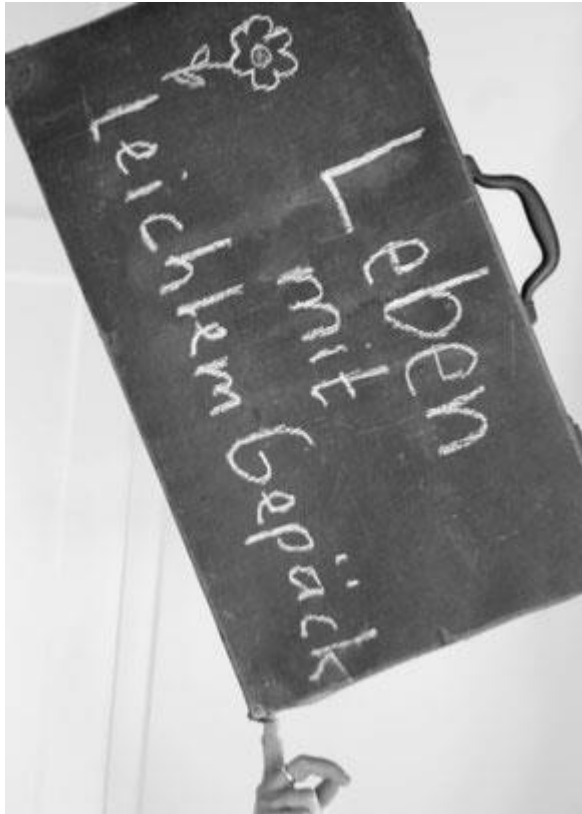 Leben
mit
Leichtem Gepäck